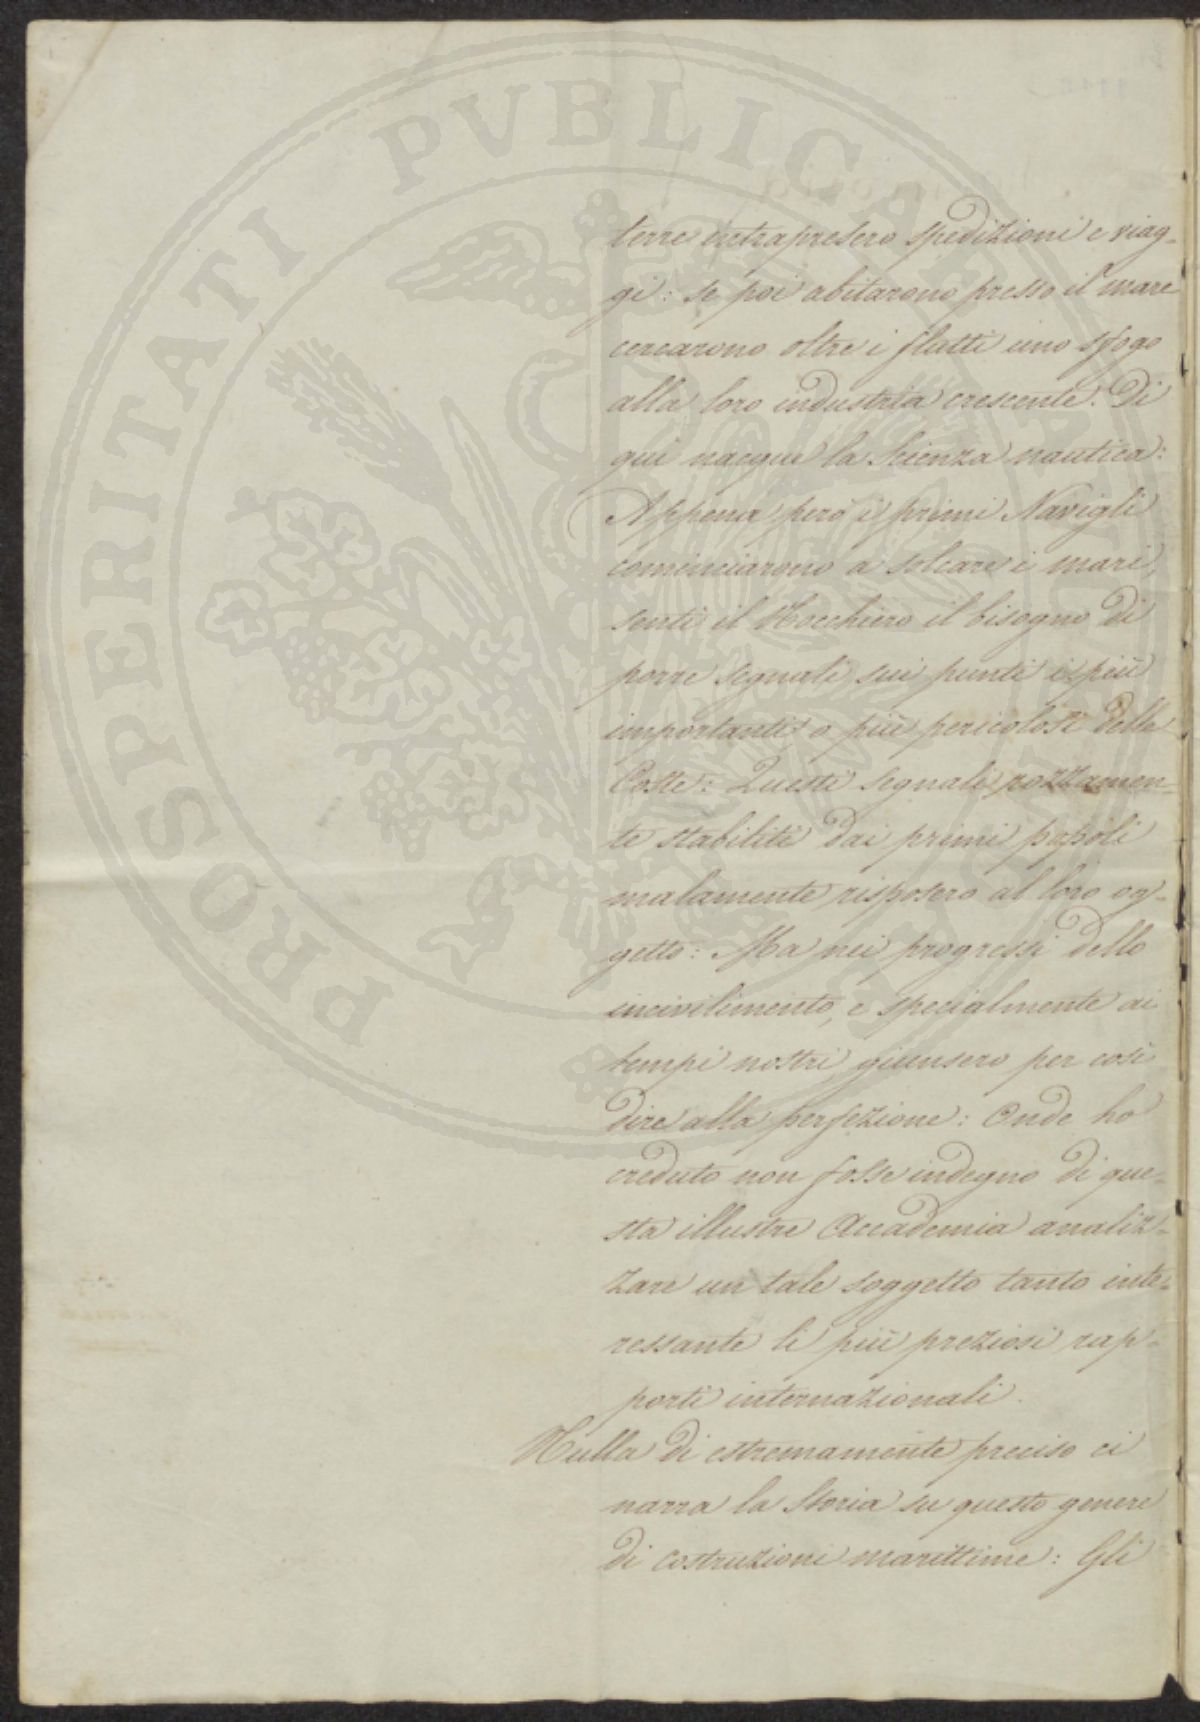 PROSPERITATI PVBLICAE
terre intrapresero spedizioni e viag-
gi: se poi abitarono presso il mare
cercarono oltre i flutti uno sfogo
alla loro industria crescente. Di
qui nacque la Scienza nautica:
Appena però i primi Navigli
cominciarono a solcare i mari,
sentì il Nocchiero il bisogno di
porre segnali sui punti i più
importanti o più pericolosi delle
Coste: Questi segnali rozzamen-
te stabiliti dai primi popoli
malamente risposero al loro og-
getto: Ma nei progressi dello
incivilimento, e specialmente ai
tempi nostri giunsero per così
dire alla perfezione: Onde ho
creduto non fosse indegno di que-
sta illustre Accademia analiz-
zare un tale soggetto tanto inte-
ressante li più preziosi rap-
porti internazionali.
Nulla di estremamente preciso ci
narra la Storia su questo genere
di costruzioni marittime: Gli